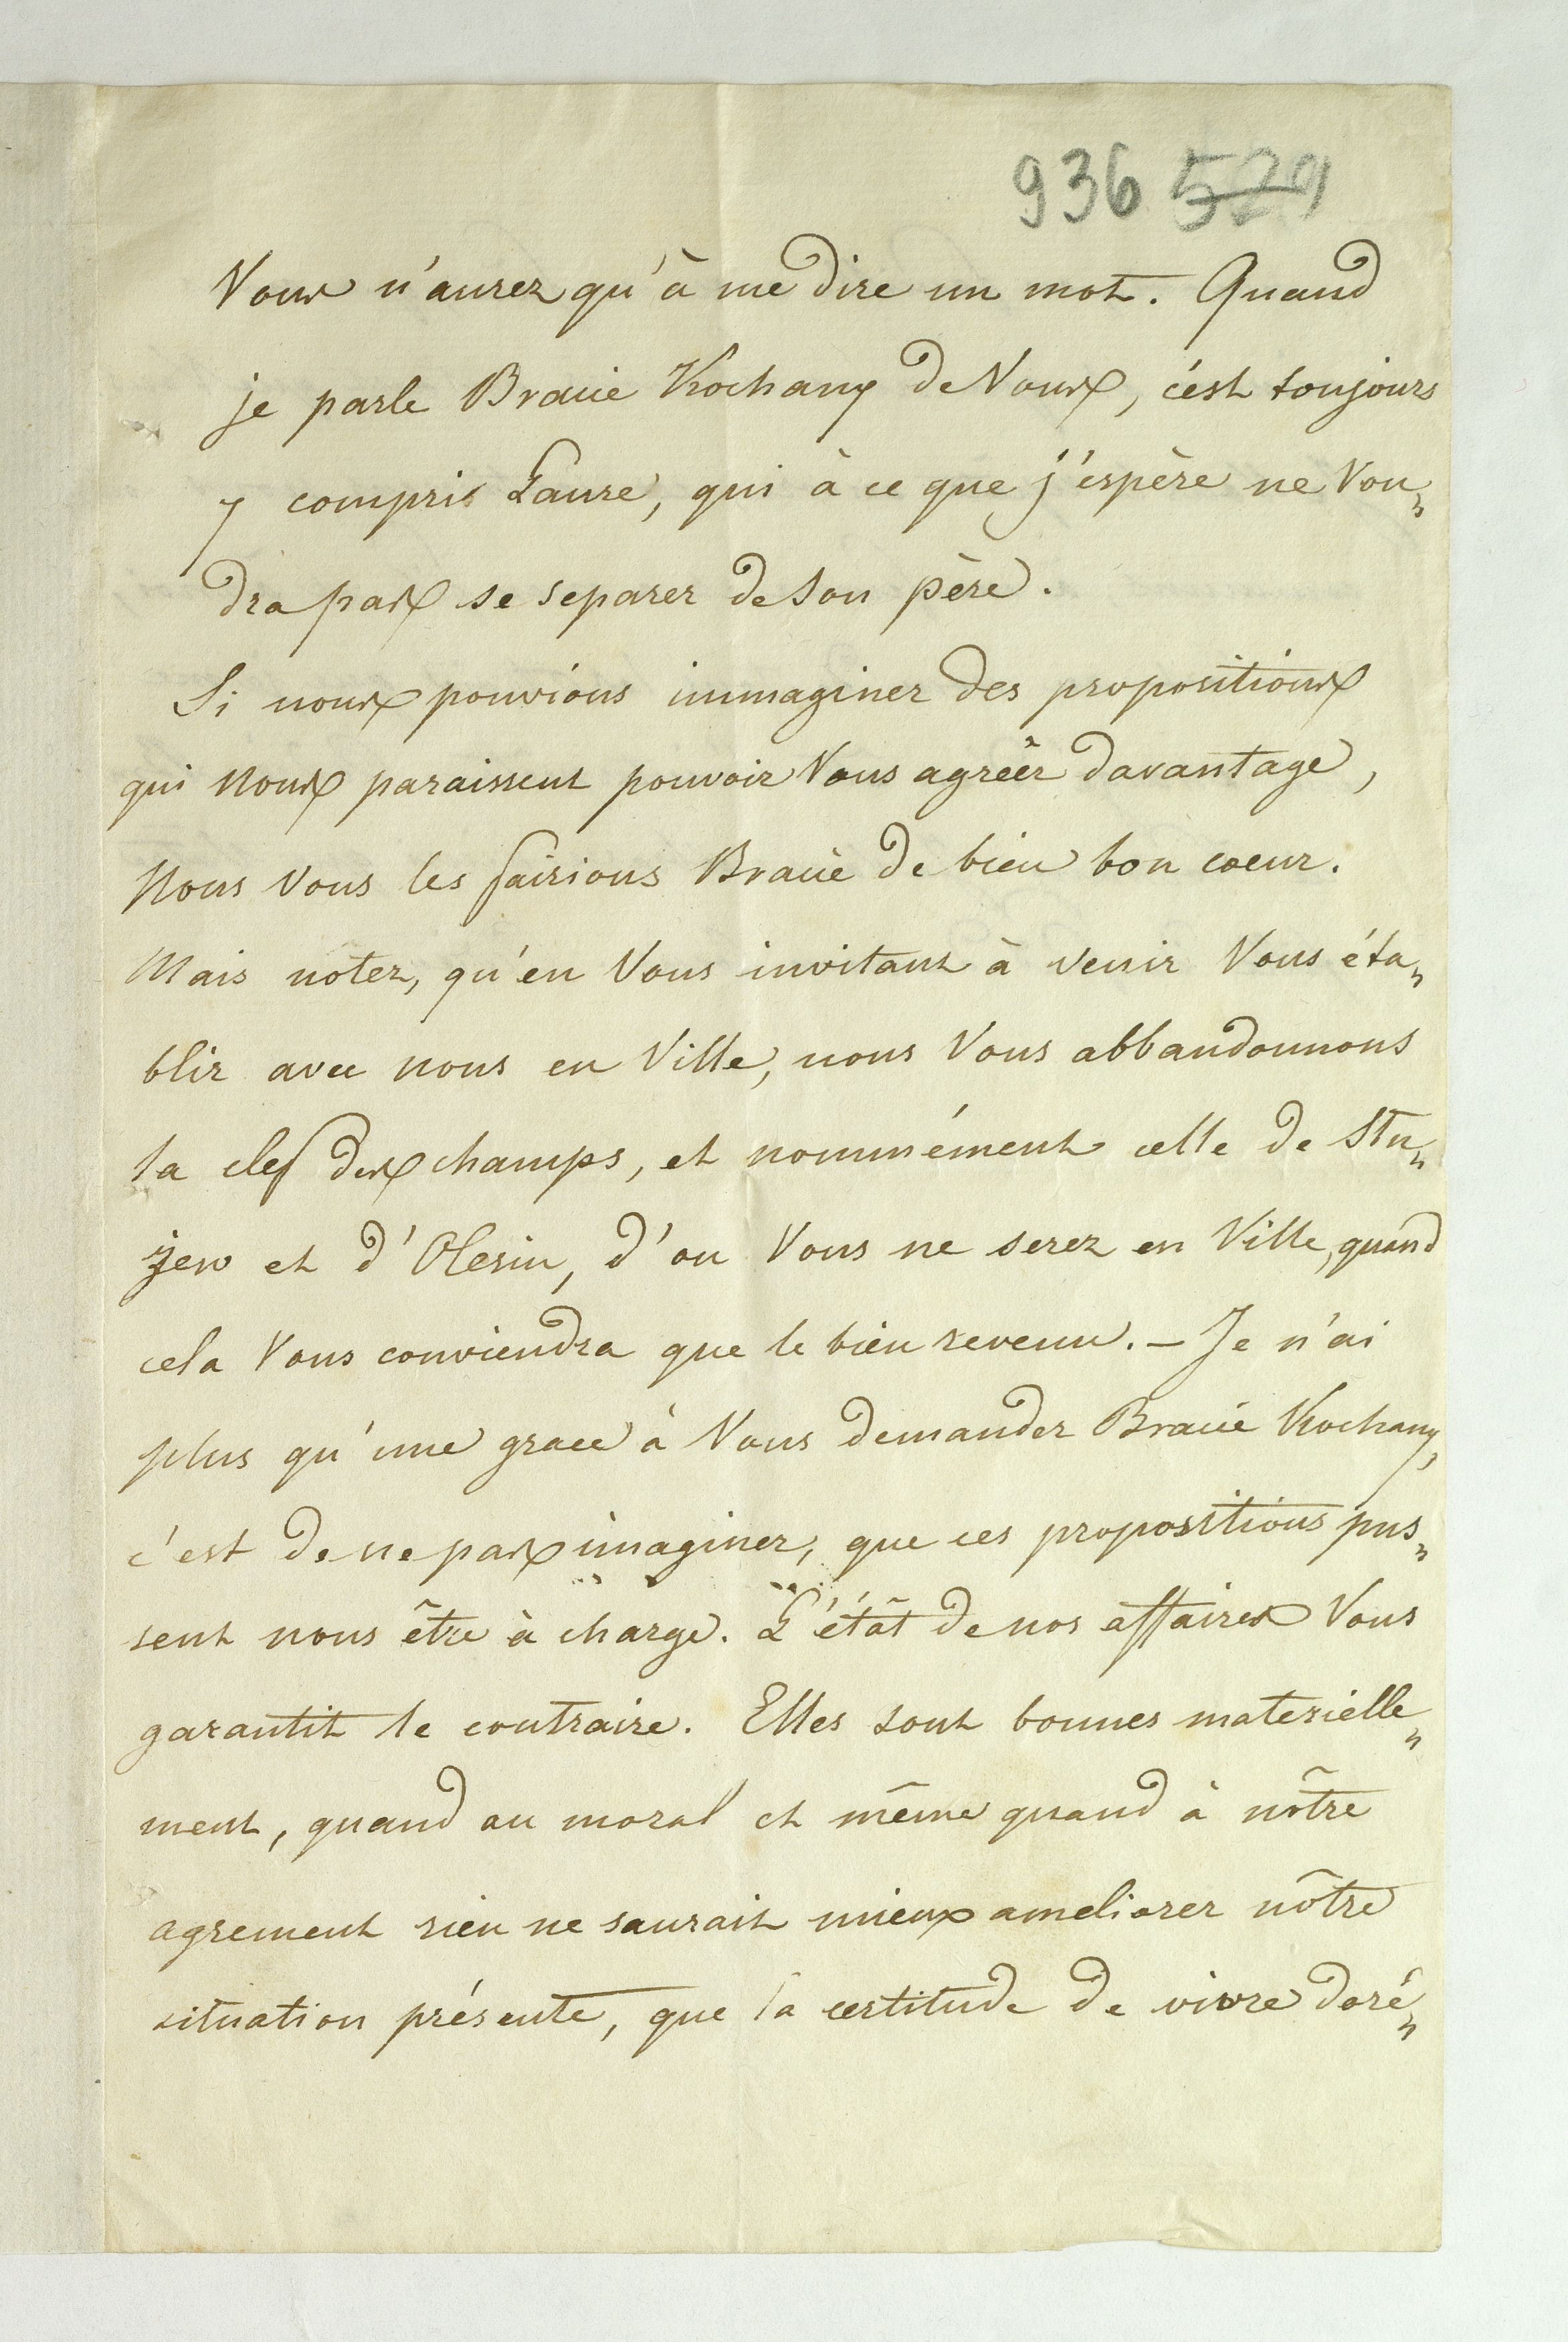 936 529
Vous n'aurez qu'à me dire un mot. Quand
je parle Bracie Kochany de Vous, c'est toujours
y compris Laure, qui à ce que j'espère ne Vou„
dra pas se separer de son père.
Si nous pouvions immaginer des propositions
qui nous paraissent pouvoir Vous agréer davantage,
Nous Vous les fairions Bracie de bien bon coeur.
Mais notez, qu'en Vous invitant à venir Vous éta„
blir avec nous en Ville, nous Vous abbandonnons
la clef des champs, et nommément celle de Stu„
zjew et d'Olesin, d'ou Vous ne serez en Ville, quand
cela Vous conviendra que le bien revenu. – Je n'ai
plus qu'une grace à Vous demander Bracie Kochany,
c'est de ne pas imaginer, que ces propositions pus„
sent nous être à charge. L'étât de nos affaires Vous
garantit le contraire. Elles sont bonnes materielle„
ment, quand au moral et même quand à nôtre
agrement rien ne saurait mieux ameliorer nôtre
situation présente, que la certitude de vivre doré„